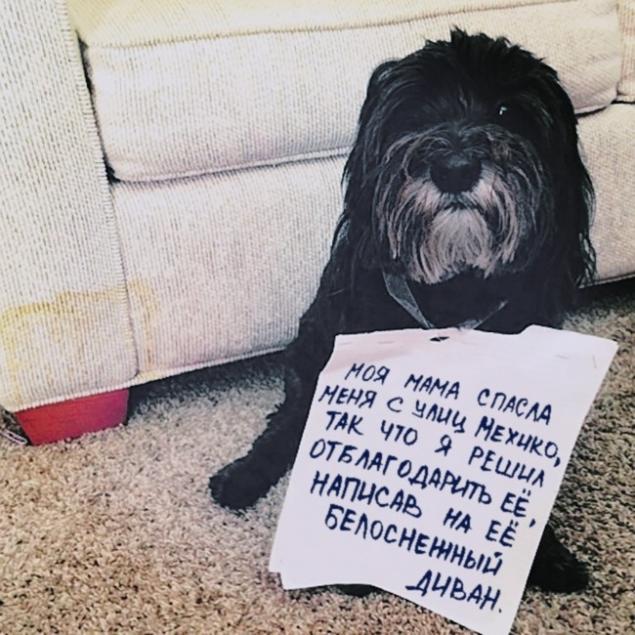 МОЯ МАМА СПАСЛА
МЕНЯ С УЛИЦ МЕХИКО,
ТАК ЧТО Я РЕШИЛ
ОТБЛАГОДАРИТЬ ЕЁ,
НАПИСАВ НА ЕЁ
БЕЛОСНЕЖНЫЙ
ДИВАН.